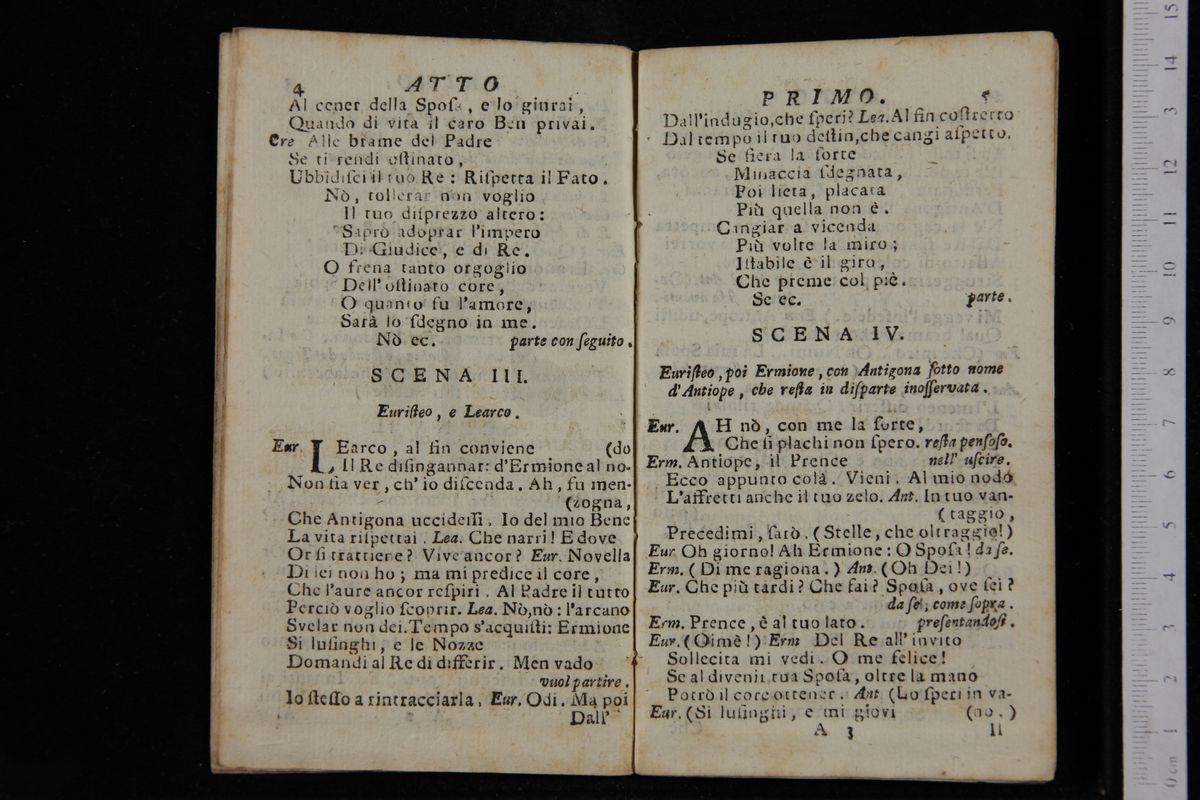 4 ATTO
Al cener della Spoſa, e lo giurai,
Quando di vita il caro Ben privai.
Cre Alle brame del Padre
Se ti rendi oſtinato,
Ubbidiſci il tuo Re: Riſpetta il Fato.
Nò, tollerar non voglio
Il tuo diſprezzo altero:
Saprò adoprar l'impero
Di Giudice, e di Re.
O frena tanto orgoglio
Dell'oſtinato core,
O quanto fu l'amore,
Sarà lo ſdegno in me.
Nò ec. parte con ſeguito.
SCENA III.
Euriſteo, e Learco.
Eur. LEarco, al fin conviene (do
Il Re diſingannar: d'Ermione al no-
Non ſia ver, ch'io diſcenda. Ah, fu men-
(zogna,
Che Antigona uccideſſi. Io del mio Bene
La vita riſpettai. Lea. Che narri! E dove
Or ſi trattiene? Vive ancor? Eur. Novella
Di lei non ho; ma mi predice il core,
Che l'aure ancor reſpiri. Al Padre il tutto
Perciò voglio ſcoprir. Lea. Nò, nò: l'arcano
Svelar non dei. Tempo s'acquiſti: Ermione
Si luſinghi, e le Nozze
Domandi al Re di differir. Men vado
vuol partire.
Io ſteſſo a rintracciarla, Eur. Odi. Ma poi
Dall'
PRIMO. 5
Dall'indugio, che ſperi? Lea. Al fin coſtretto
Dal tempo il tuo deſtin, che cangi aſpetto.
Se fiera la ſorte
Minaccia ſdegnata,
Poi lieta, placata
Più quella non è.
Cangiar a vicenda
Più volte la miro;
Iſtabile è il giro,
Che preme col piè.
Se ec. parte.
SCENA IV.
Euriſteo, poi Ermione, con Antigona ſotto nome
d'Antiope, che reſta in diſparte inoſſervata.
Eur. AH nò, con me la ſorte,
Che ſi plachi non ſpero. reſta penſoſo.
Erm. Antiope, il Prence nell' uſcire.
Ecco appunto colà. Vieni. Al mio nodo
L'affretti anche il tuo zelo. Ant. In tuo van-
(taggio,
Precedimi, ſarò. (Stelle, che oltraggio!)
Eur Oh giorno! Ah Ermione: O Spoſa! da ſe.
Erm. (Di me ragiona.) Ant. (Oh Dei!)
Eur. Che più tardi? Che fai? Spoſa, ove ſei?
da ſe, come ſopra.
Erm. Prence, è al tuo lato. preſentandoſi.
Eur. (Oimè!) Erm Del Re all'invito
Sollecita mi vedi. O me felice!
Se al divenir tua Spoſa, oltre la mano
Potrò il core ottener. Ant (Lo ſperi in va-
Eur. (Si luſinghi, e mi giovi (no.)
A 3 Il